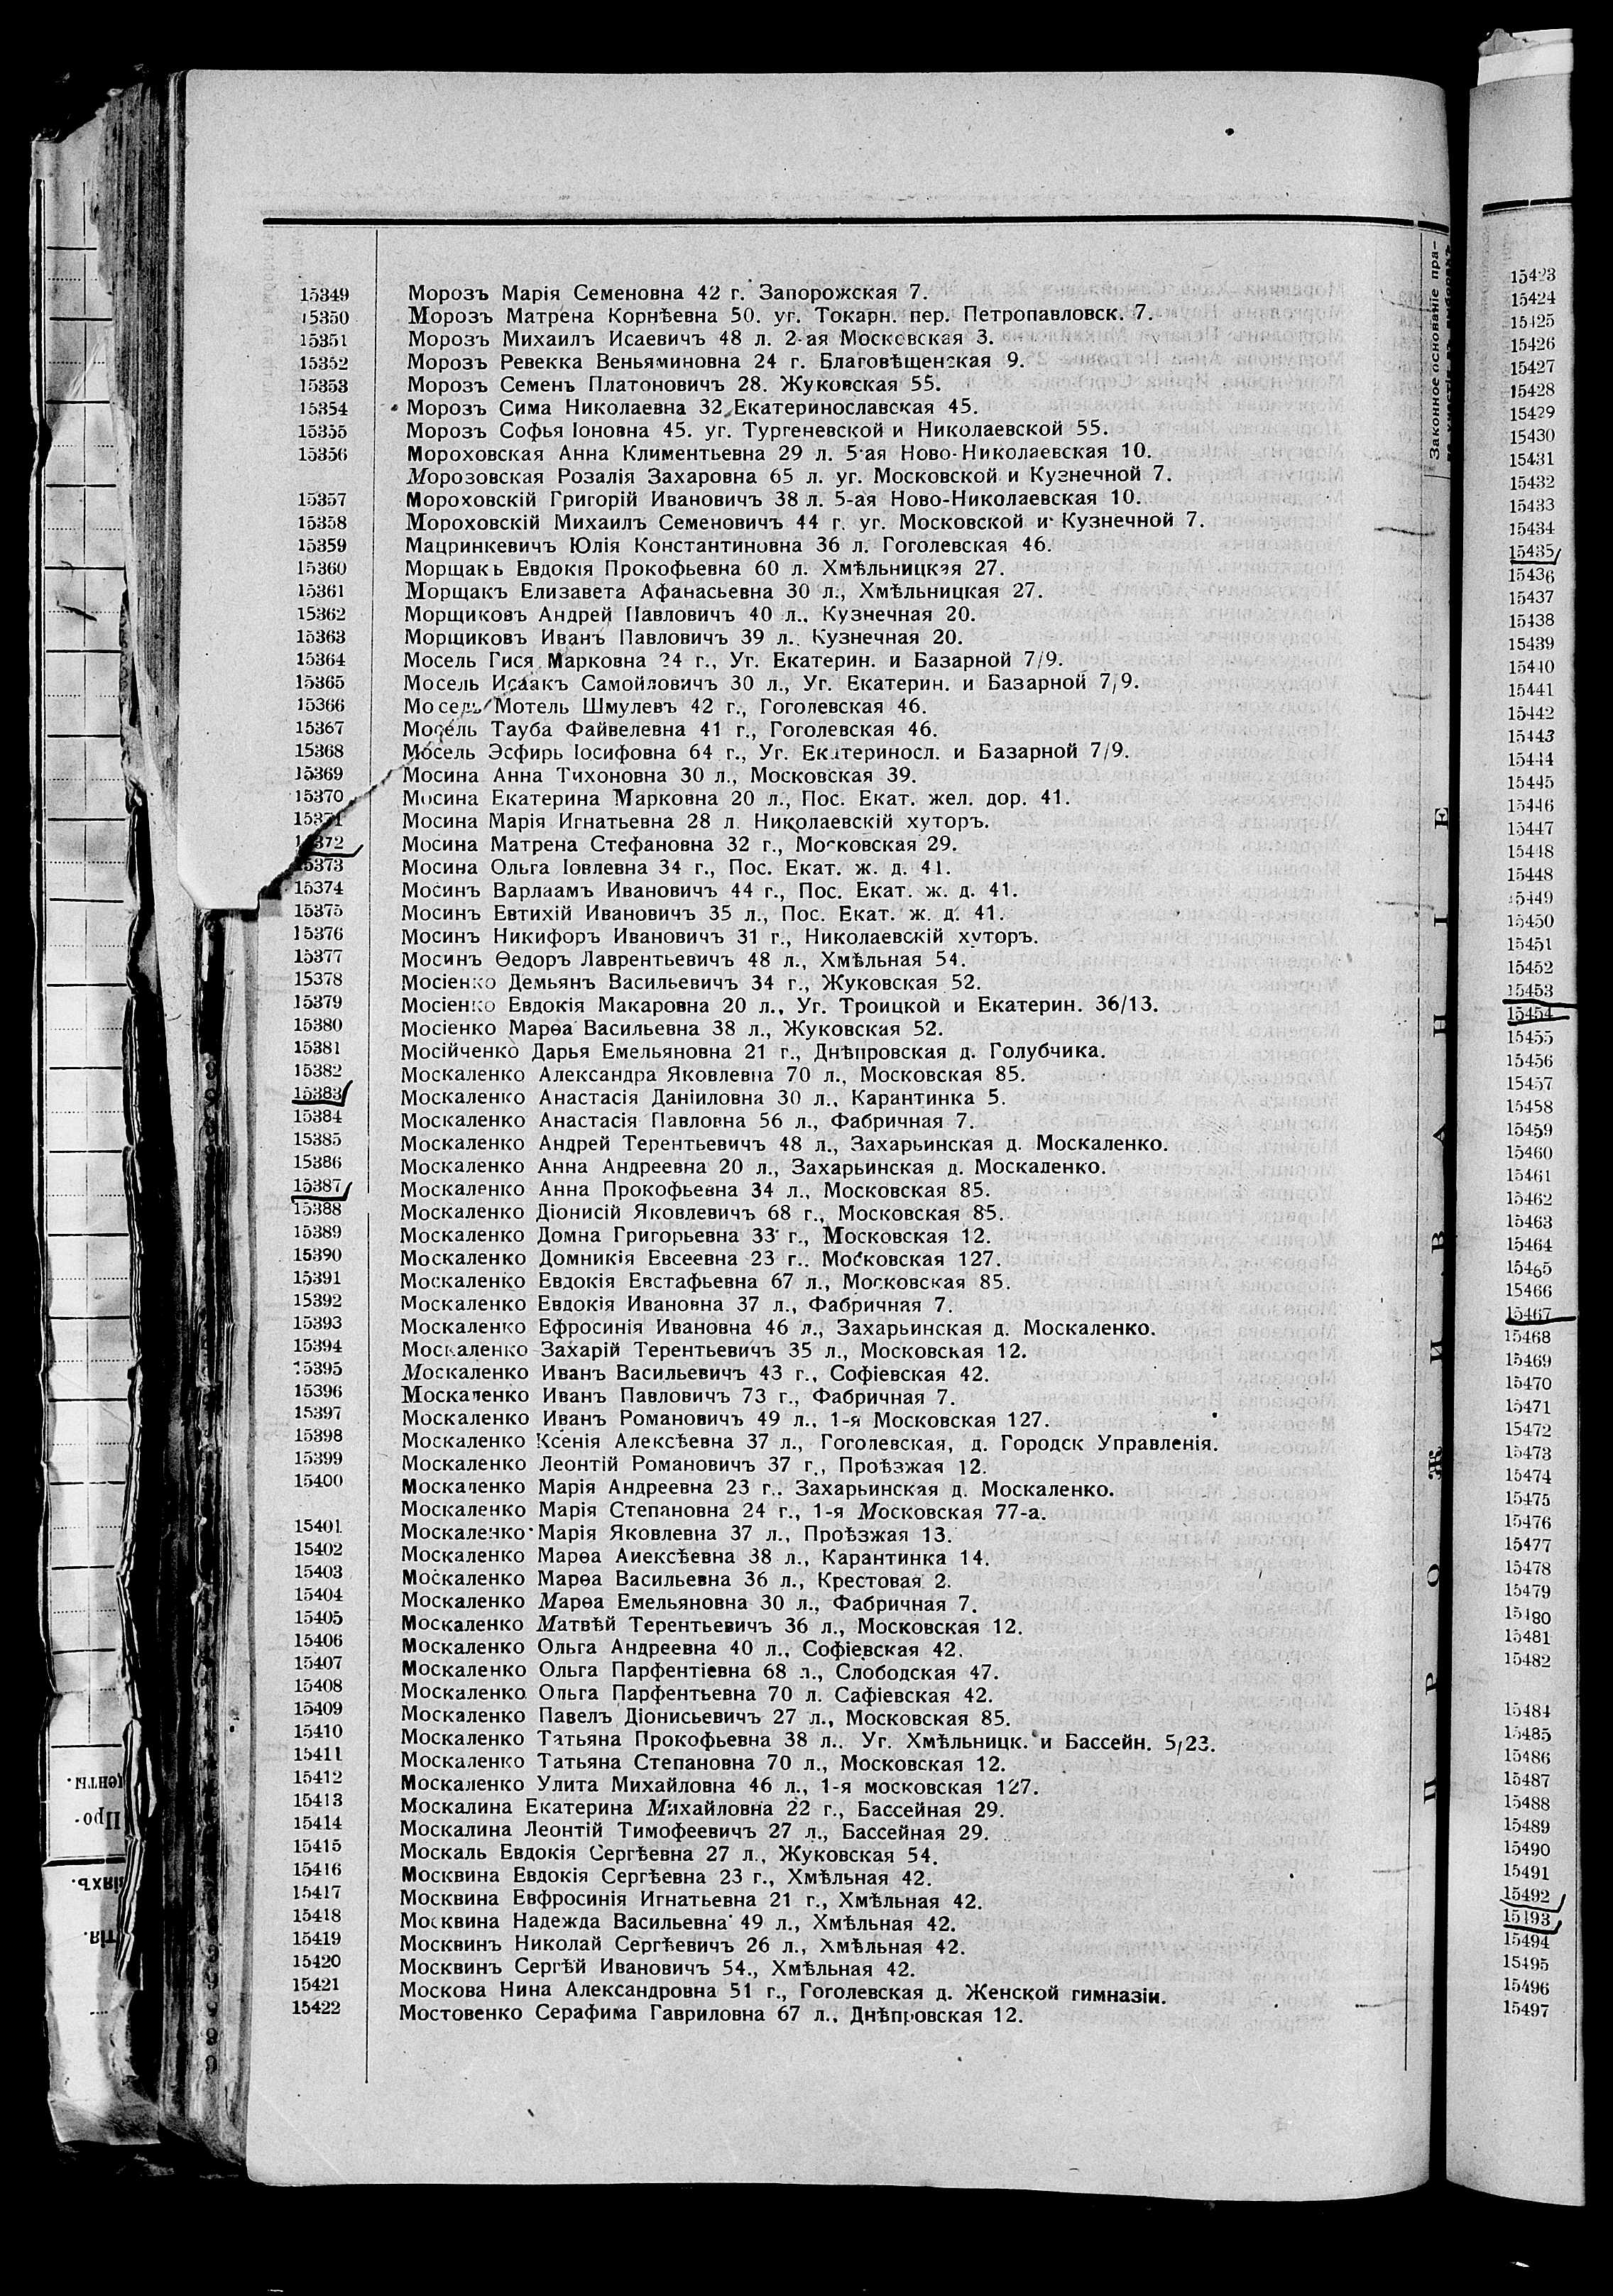 15349 Морозъ Марія Семеновна 42 г. Запорожская 7.
15350 Морозъ Матрена Корнѣевна 50. уг. Токарн. пер. Петропавловск. 7.
15351 Морозъ Михаилъ Исаевичъ 48 л. 2-ая Московская 3.
15352 Морозъ Ревекка Веньяминовна 24 г. Благовѣщенская 9.
15353 Морозъ Семенъ Платоновичъ 28. Жуковская 55.
15354 Морозъ Сима Николаевна 32 Екатеринославская 45.
15355 Морозъ Софья Іоновна 45. уг. Тургеневской и Николаевской 55.
15356 Мороховская Анна Климентьевна 29 л. 5-ая Ново-Николаевская 10.
Морозовская Розалія Захаровна 65 л. уг. Московской и Кузнечной 7.
15357 Мороховскій Григорій Ивановичъ 38 л. 5-ая Ново-Николаевская 10.
15358 Мороховскій Михаилъ Семеновичъ 44 г. уг. Московской и Кузнечной 7.
15359 Мацринкевичъ Юлія Константиновна 36 л. Гоголевская 46.
15360 Морщакъ Евдокія Прокофьевна 60 л. Хмѣльницкая 27.
15361 Морщакъ Елизавета Афанасьевна 30 л., Хмѣльницкая 27.
15362 Морщиковъ Андрей Павловичъ 40 л., Кузнечная 20.
15363 Морщиковъ Иванъ Павловичъ 39 л., Кузнечная 20.
15364 Мосель Гися Марковна 24 г., Уг. Екатерин. и Базарной 7/9.
15365 Мосель Исаакъ Самойловичъ 30 л., Уг. Екатерин. и Базарной 7/9.
15366 Мосель Мотель Шмулевъ 42 г., Гоголевская 46.
15367 Мосель Тауба Файвелевна 41 г., Гоголевская 46.
15368 Мосель Эсфирь Іосифовна 64 г., Уг. Екатериносл. и Базарной 7/9.
15369 Мосина Анна Тихоновна 30 л., Московская 39.
15370 Мосина Екатерина Марковна 20 л., Пос. Екат. жел. дор. 41.
15371 Мосина Марія Игнатьевна 28 л. Николаевскій хуторъ.
15372 Мосина Матрена Стефановна 32 г., Московская 29.
15373 Мосина Ольга Іовлевна 34 г., Пос. Екат. ж. д. 41.
15374 Мосинъ Варлаамъ Ивановичъ 44 г., Пос. Екат. ж. д. 41.
15375 Мосинъ Евтихій Ивановичъ 35 л., Пос. Екат. ж. д. 41.
15376 Мосинъ Никифоръ Ивановичъ 31 г., Николаевскій хуторъ.
15377 Мосинъ Ѳедоръ Лаврентьевичъ 48 л., Хмѣльная 54.
15378 Мосіенко Демьянъ Васильевичъ 34 г., Жуковская 52.
15379 Мосіенко Евдокія Макаровна 20 л., Уг. Троицкой и Екатерин. 36/13.
15380 Мосіенко Марѳа Васильевна 38 л., Жуковская 52.
15381 Мосійченко Дарья Емельяновна 21 г., Днѣпровская д. Голубчика.
15382 Москаленко Александра Яковлевна 70 л., Московская 85.
15383 Москаленко Анастасія Даніиловна 30 л., Карантинка 5.
15384 Москаленко Анастасія Павловна 56 л., Фабричная 7.
15385 Москаленко Андрей Терентьевичъ 48 л., Захарьинская д. Москаленко.
15386 Москаленко Анна Андреевна 20 л., Захарьинская д. Москаленко.
15387 Москаленко Анна Прокофьевна 34 л., Московская 85.
15388 Москаленко Діонисій Яковлевичъ 68 г., Московская 85.
15389 Москаленко Домна Григорьевна 33 г., Московская 12.
15390 Москаленко Домникія Евсеевна 23 г.. Московская 127.
15391 Москаленко Евдокія Евстафьевна 67 л., Московская 85.
15392 Москаленко Евдокія Ивановна 37 л., Фабричная 7.
15393 Москаленко Ефросинія Ивановна 46 л., Захарьинская д. Москаленко.
15394 Москаленко Захарій Терентьевичъ 35 л., Московская 12.
15395 Москаленко Иванъ Васильевичъ 43 г., Софіевская 42.
15396 Москаленко Иванъ Павловичъ 73 г., Фабричная 7.
15397 Москаленко Иванъ Романовичъ 49 л., 1-я Московская 127.
15398 Москаленко Ксенія Алексѣевна 37 л., Гоголевская, д. Городск Управленія.
15399 Москаленко Леонтій Романовичъ 37 г., Проѣзжая 12.
15400 Москаленко Марія Андреевна 23 г.. Захарьинская д. Москаленко.
Москаленко Марія Степановна 24 г., 1-я Московская 77-а.
15401 Москаленко Марія Яковлевна 37 л., Проѣзжая 13.
15402 Москаленко Марѳа Аиексѣевна 38 л., Карантинка 14.
15403 Москаленко Марѳа Васильевна 36 л., Крестовая 2.
15404 Москаленко Марѳа Емельяновна 30 л., Фабричная 7.
15405 Москаленко Матвѣй Терентьевичъ 36 л., Московская 12.
15406 Москаленко Ольга Андреевна 40 л., Софіевская 42.
15407 Москаленко Ольга Парфентіевна 68 л., Слободская 47.
15408 Москаленко Ольга Парфентьевна 70 л. Сафіевская 42.
15409 Москаленко Павелъ Діонисьевичъ 27 л., Московская 85.
15410 Москаленко Татьяна Прокофьевна 38 л.. Уг. Хмѣльницк. и Бассейн. 5/23.
15411 Москаленко Татьяна Степановна 70 л., Московская 12.
15412 Москаленко Улита Михайловна 46 л., 1-я московская 127.
15413 Москалина Екатерина Михайловна 22 г., Бассейная 29.
15414 Москалина Леонтій Тимофеевичъ 27 л., Бассейная 29.
15415 Москаль Евдокія Сергѣевна 27 л., Жуковская 54.
15416 Москвина Евдокія Сергѣевна 23 г., Хмѣльная 42.
15417 Москвина Евфросинія Игнатьевна 21 г., Хмѣльная 42.
15418 Москвина Надежда Васильевна 49 л., Хмѣльная 42.
15419 Москвинъ Николай Сергѣевичъ 26 л., Хмѣльная 42.
15420 Москвинъ Сергѣй Ивановичъ 54., Хмѣльная 42.
15421 Москова Нина Александровна 51 г., Гоголевская д. Женской гимназіи.
15422 Мостовенко Серафима Гавриловна 67 л., Днѣпровская 12.
Законное основаніе пра-
ПРОЖИВАНІЕ
15423
15424
15425
15426
15427
15428
15429
15430
15431
15432
15433
15434
15435
15436
15437
15438
15439
15440
15441
15442
15443
15444
15445
15446
15447
15448
15448
15449
15450
15451
15452
15453
15454
15455
15456
15457
15458
15459
15460
15461
15462
15463
15464
15465
15466
15467
15468
15469
15470
15471
15472
15473
15474
15475
15476
15477
15478
15479
15480
15481
15482
15484
15485
15486
15487
15488
15489
15490
15491
15492
15493
15494
15495
15496
15497